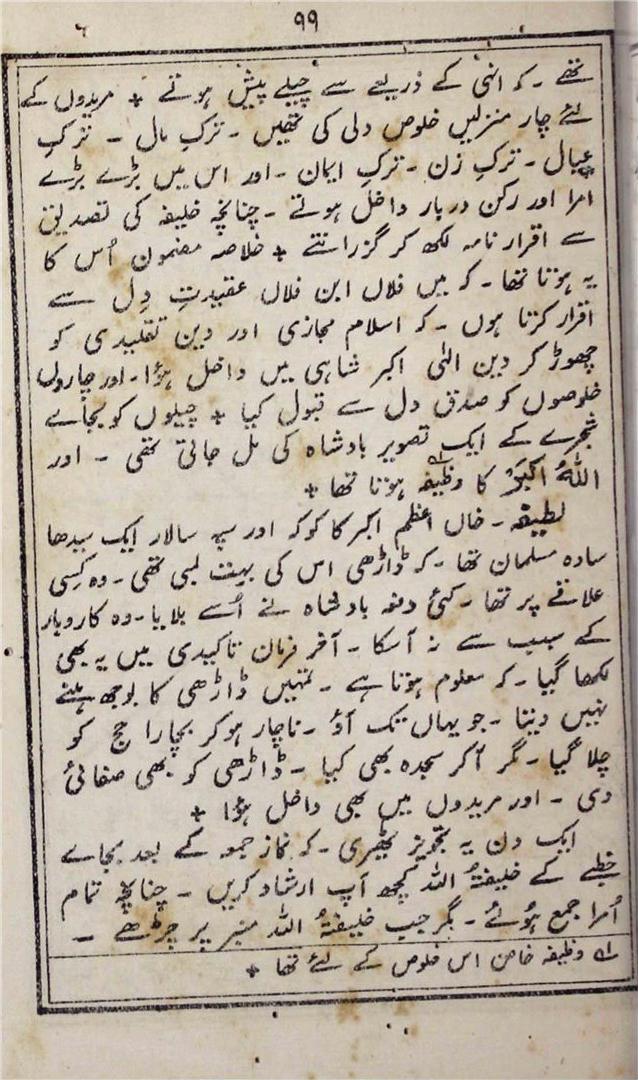 ۹۹
تھے ۔ کہ انہی کے ذریعے سے چیلے پیش ہوتے + مریدوں کے
لئے چار منزلیں خلوص دلی کی تھیں ۔ ترکِ مال ۔ ترکِ
عیال ۔ ترکِ زن ۔ ترکِ ایمان ۔ اور اس میں بڑے بڑے
امرا اور رکن دربار داخل ہوتے ۔ چنانچہ خلیفہ کی تصدیق
سے اقرار نامہ لکھ کر گزرانتے + خلاصہ مضمون اُس کا
یہ ہوتا تھا ۔ کہ میں فلاں ابن فلاں عقیدتِ دِل سے
اقرار کرتا ہوں ۔ کہ اسلام مجازی اور دین تقلیدی کو
چھوڑ کر دین الٰہی اکبر شاہی میں داخل ہؤا ۔ اور چاروں
خلوصوں کو صدق دل سے قبول کیا + چیلوں کو بجاے
شجرے کے ایک تصویر بادشاہ کی مل جاتی تھی ۔ اور
اَللہُ اَکبَرُ کا وظیفہ ؎۱ ہوتا تھا +
لطیفہ ۔ خاں اعظم اکبر کا کوکہ اور سپہ سالار ایک سیدھا
سادہ مسلمان تھا ۔ کہ ڈاڑھی اس کی بہت لمبی تھی ۔ وہ کِسی
علاقے پر تھا ۔ کئی دفعہ بادشاہ نے اُسے بلایا ۔ وہ کاروبار
کے سبب سے نہ آسکا ۔ آخر فرمان تاکیدی میں یہ بھی
لکھا گیا ۔ کہ معلوم ہوتا ہے ۔ تمہیں ڈاڑھی کا بوجھ ہلنے
نہیں دیتا ۔ جو یہاں تک آؤ ۔ ناچار ہوکر بچارا حج کو
چلا گیا ۔ مگر آکر سجدہ بھی کیا ۔ ڈاڑھی کو بھی صفائی
دی ۔ اور مریدوں میں بھی داخل ہؤا +
ایک دن یہ تجویز ٹھیری ۔ کہ نماز جمعہ کے بعد بجاے
خطبے کے خلیفۃُ اللہ کچھ آپ ارشاد کریں ۔ چنانچہ تمام
اُمرا جمع ہوُئے ۔ مگر جب خلیفۃُ اللہ منبر پر چڑھے ۔
؎۱ وظیفہ خاص اس خلوص کے لئے تھا +